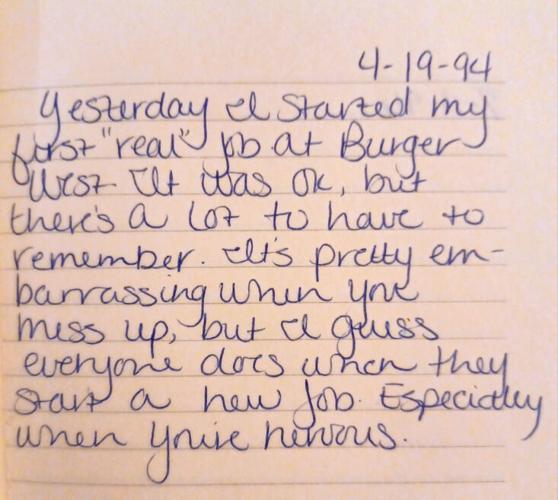 4-19-94
Yesterday I started my
first "real" job at Burger
West. It was ok, but
there's a lot to have to
remember. It's pretty em-
barrassing when you
mess up, but I guess
everyone does when they
start a new job. Especially
when you're nervous.